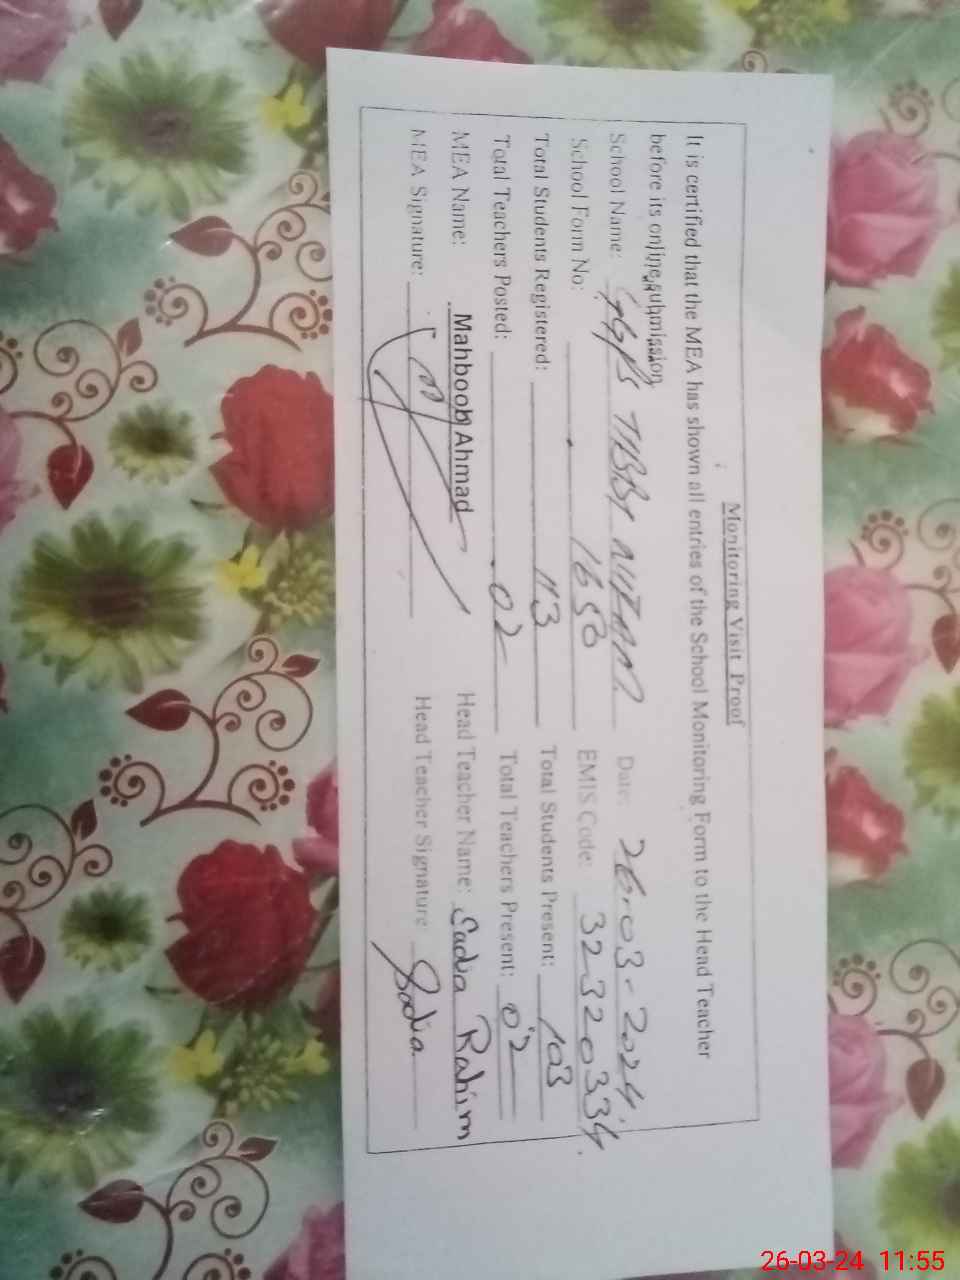 Monitoring Visit Proof
It is certified that the MEA has shown all entries of the School Monitoring Form to the Head Teacher
before its online submission
School Name: GGPS TIBBI NIZAM Date: 26-03-2024
School Form No: 1650 EMIS Code: 32320334
Total Students Registered: 113 Total Students Present: 103
Total Teachers Posted: 02 Total Teachers Present: 02
MEA Name: Mahboob Ahmad Head Teacher Name: Sadia Rahim
MEA Signature: Head Teacher Signature: Sadia
26-03-24 11:55